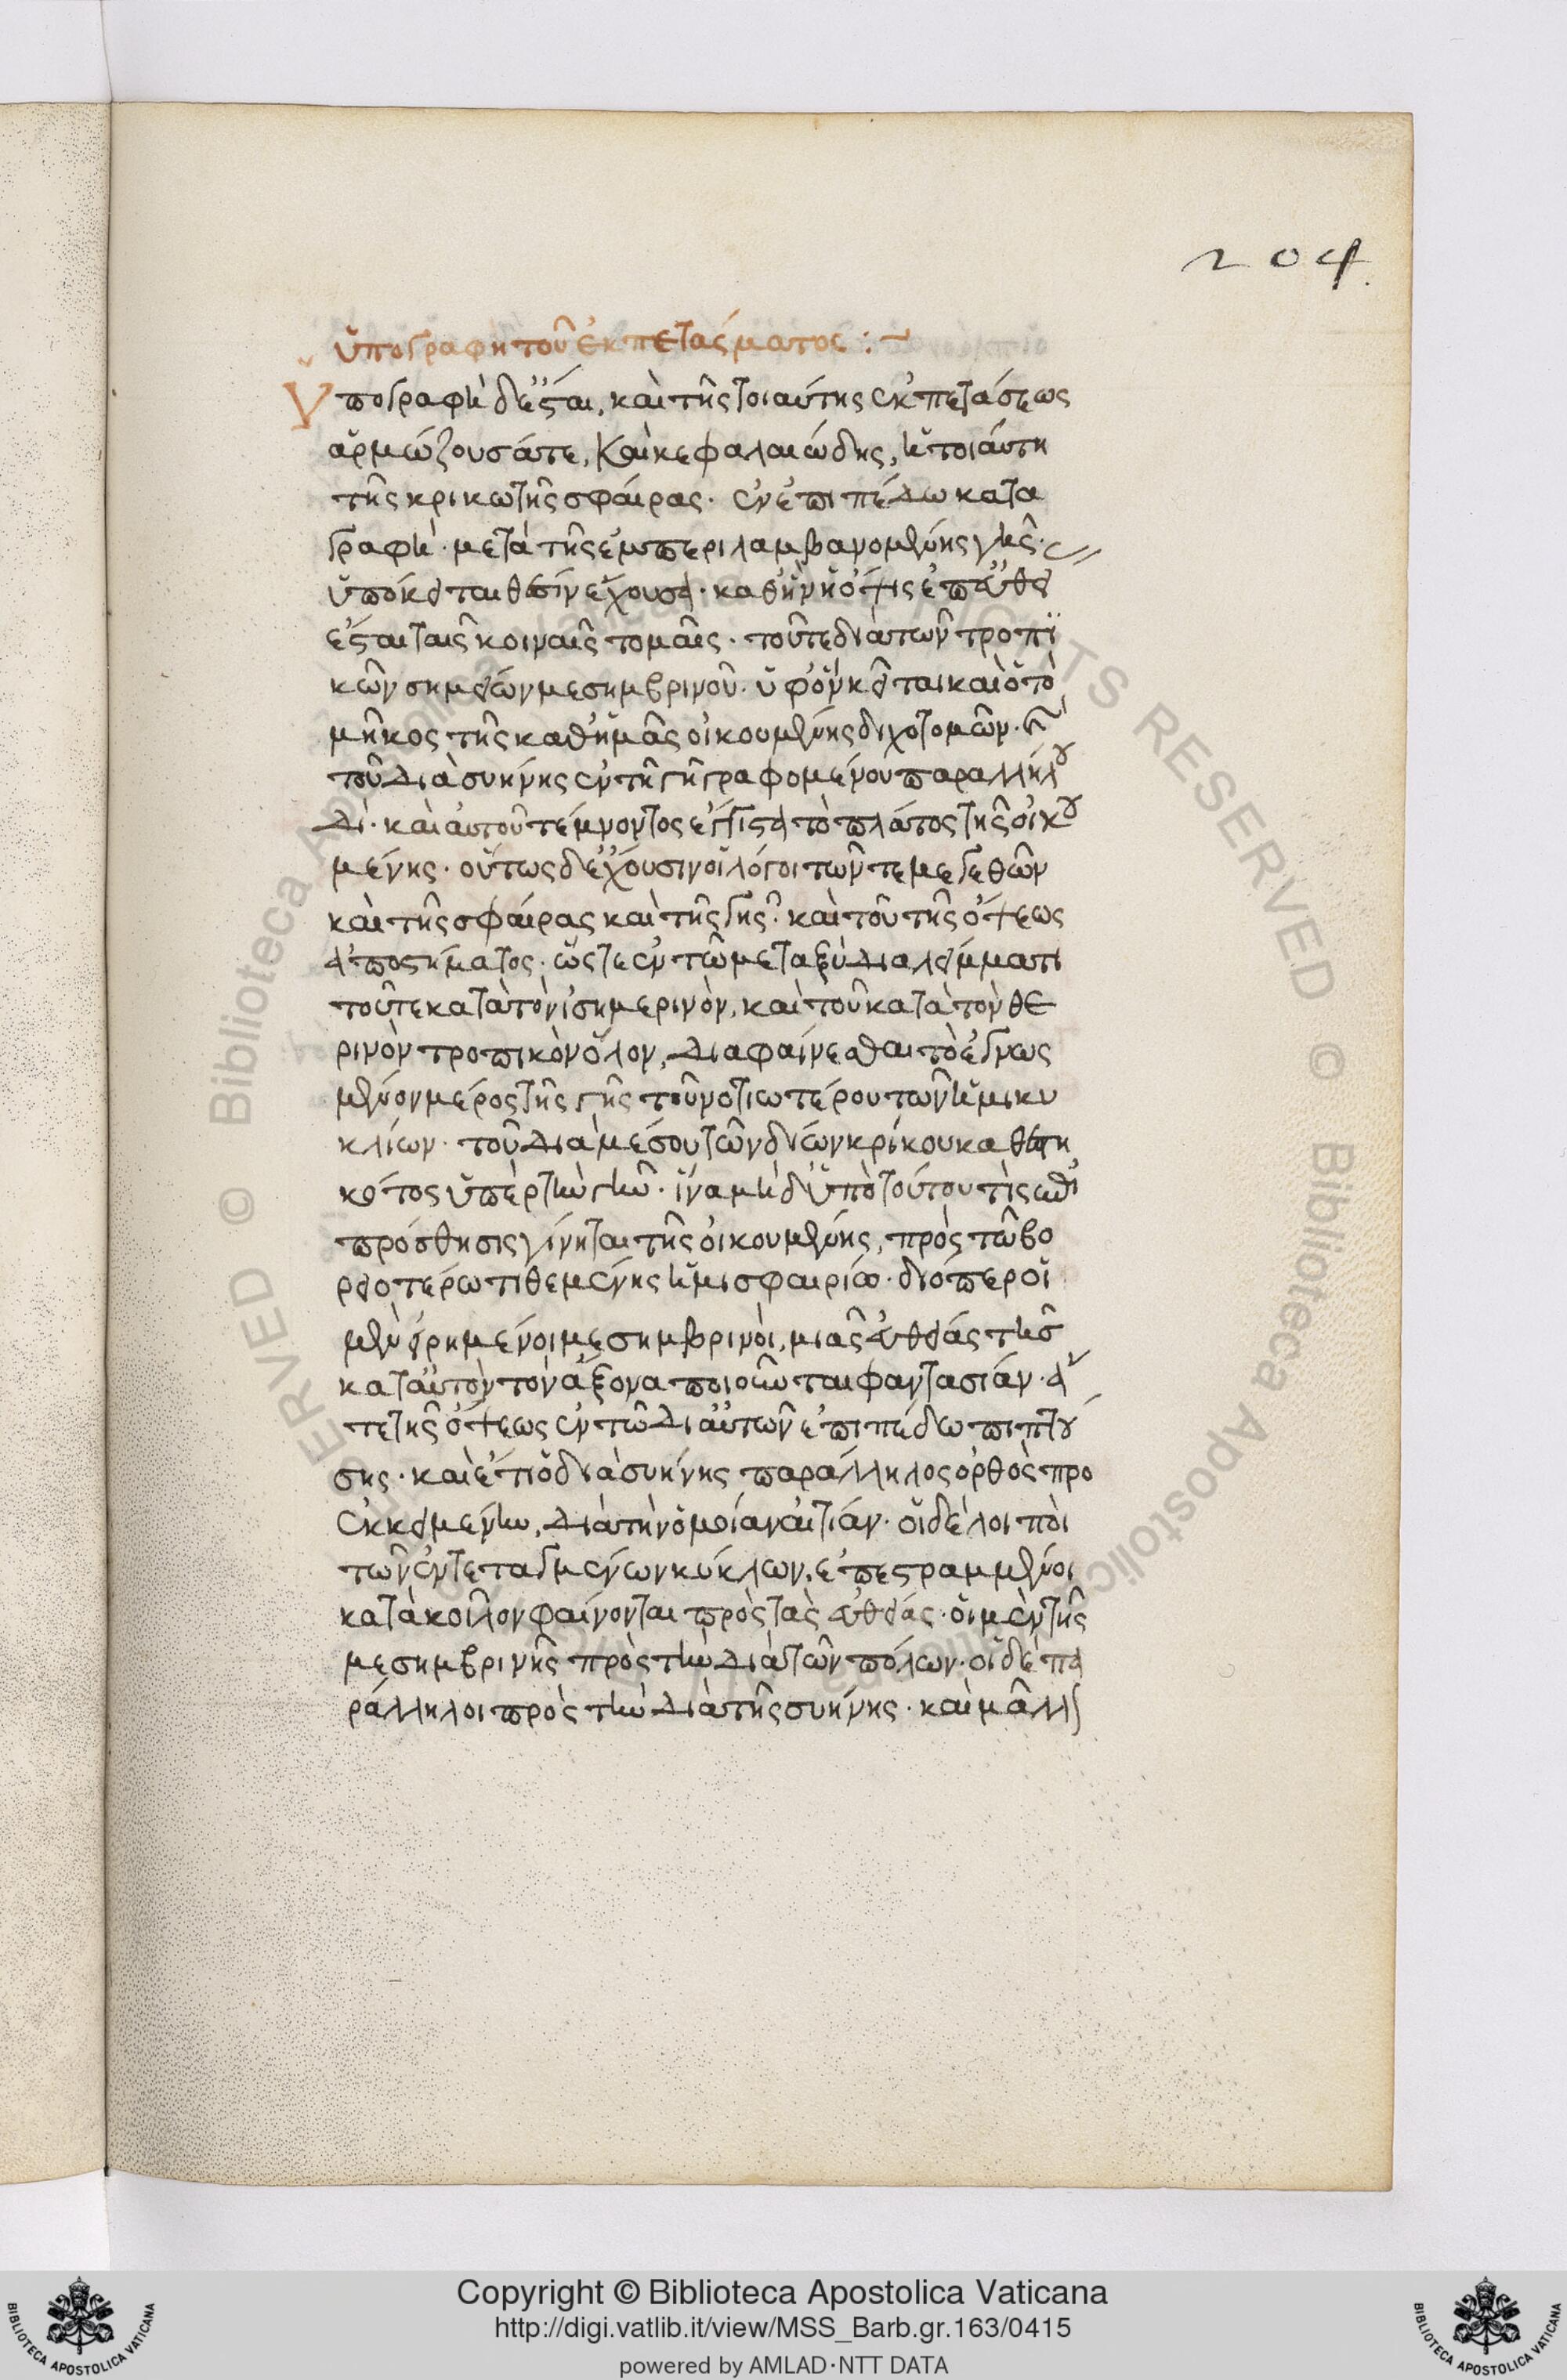 204
ὑπογραφὴ τοῦ ἐκπετάσματος :~
Ὑπογραφὴ δ' ἔσται, καὶ τῆς τοιαύτης ἐκπετάσεως
ἁρμόζουσά τε, καὶ κεφαλαιώδης, ἡ τοιαύτη
τῆς κρικωτῆς σφαίρας· ἐν ἐπιπέδω κατα
γραφὴ· μετὰ τῆς ἐμπεριλαμβανομένης γῆς·
ὑπόκειται θέσιν ἔχουσα· καθ' ἣν ἡ ὄψις ἐπ' εὐθεί
ἔσται ταῖς κοιναῖς τομαῖς· τοῦ τε διὰ τῶν τροπϊ
κῶν σημείων μεσημβρινοῦ· ὑφ' ὃν κεῖται καὶ ὁ τὸ
μῆκος τῆς καθ' ἡμᾶς οἰκουμένης διχοτομῶν· καὶ
τοῦ διὰ συήνης ἐν τῆ γῆ γραφομένου παραλλήλου
δι· καὶ αὐτοῦ τέμνοντος ἔγγιστα τὸ πλάτος τῆς οἰκου
μένης· οὕτως δ' ἔχουσιν οἱ λόγοι τῶν τε μεγεθῶν
καὶ τῆς σφαίρας καὶ τῆς γῆς· καὶ τοῦ τῆς ὄψεως
ἀποστήματος· ὥστε ἐν τῶ μεταξὺ διαλείμματι
τοῦ τε κατὰ τὸν ἰσημερινὸν, καὶ τοῦ κατὰ τὸν θε
ρινὸν τροπικὸν ὅλον, διαφαίνεσθαι τὸ ἐγνως
μένον μέρος τῆς γῆς τοῦ νοτιωτέρου τῶν ἡμικυ
κλίων· τοῦ διὰ μέσου τῶν διών κρίκου καθεστη
κότος ὑπὲρ τὴν γῆν· ἵνα μὴ δ' ὑπὸ τούτου τὶς ἐπι
πρόσθησις γίνηται τῆς οἰκουμένης, πρὸς τῶ βο
ρειοτέρω τιθεμένης ἡμισφαιρίω· διόπερ οἱ
μὲν εἰρημένοι μεσημβρινοὶ, μιᾶς εὐθείας τῆς
κατ' αὐτὸν τὸν ἄξονα ποιοῦνται φαντασίαν· ἅ
τε τῆς ὄψεως ἐν τῶ δι' αὐτῶν ἐπιπέδω πιπτού
σης· καὶ ἔτι ὁ διὰ συήνης παράλληλος ὀρθὸς προ
ἐκκειμένω, διὰ τὴν ὁμοίαν αἰτίαν· οἱ δὲ λοιποὶ
τῶν ἐντεταγμένων κύκλων, ἐπεστραμμένοι
κατὰ κοῖλον φαίνονται πρὸς τὰς εὐθείας· οἱ μὲν τῆς
μεσημβρινῆς πρὸς τὴν διὰ τῶν πόλων· οἱ δὲ πα
ράλληλοι πρὸς τὴν διὰ τῆς συήνης· καὶ μᾶλλ
Copyright © Biblioteca Apostolica Vaticana
http://digi.vatlib.it/view/MSS_Barb.gr.163/0415
powered by AMLAD·NTT DATA